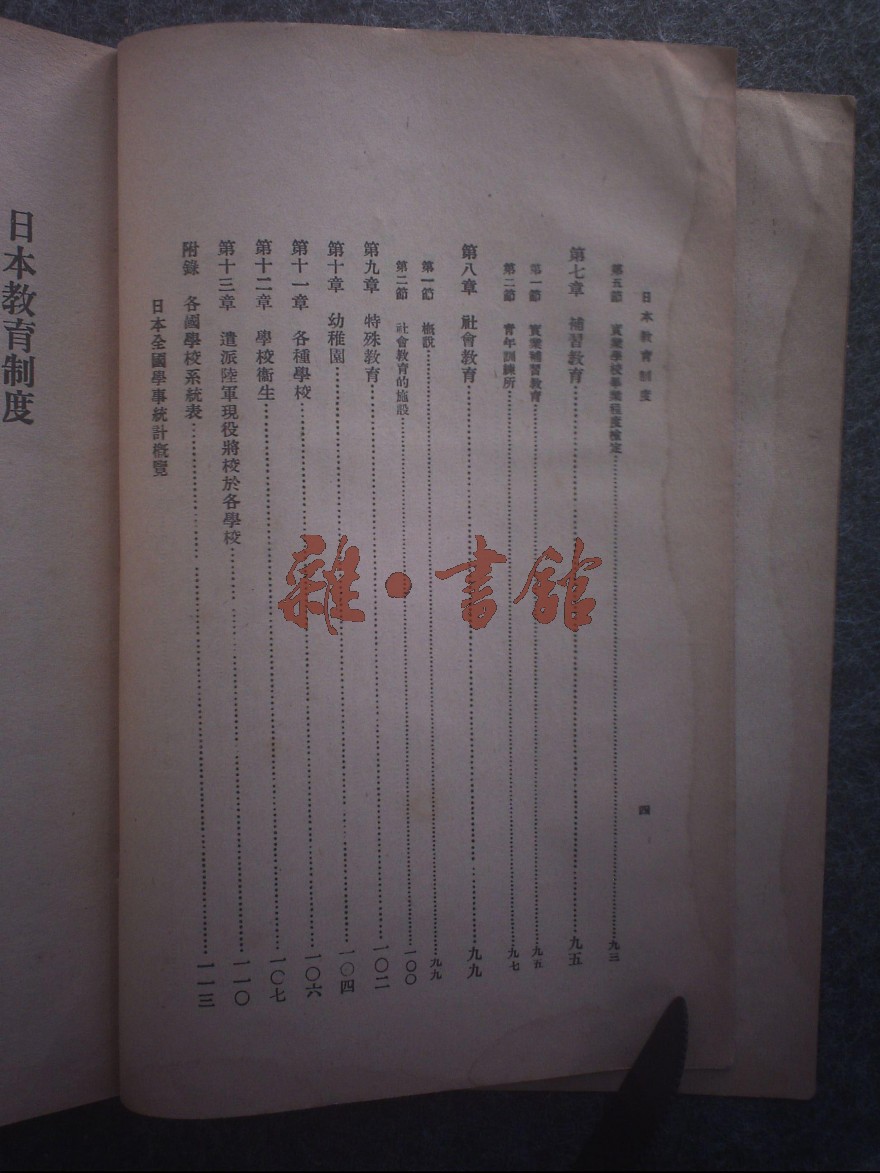 日本教育制度
四
第五節 實業學校畢業程度檢定……九三
第七章 補習教育……九五
第一節 實業補習教育……九五
第二節 青年訓練所……九七
第八章 社會教育……九九
第一節 概說……九九
第二節 社會教育的施設……一〇〇
第九章 特殊教育……一〇二
第十章 幼稚園……一〇四
第十一章 各種學校……一〇六
第十二章 學校衞生……一〇七
第十三章 遣派陸軍現役將校於各學校……一一〇
附錄 各國學校系統表……一一三
日本全國學事統計概覽
日本教育制度
雜·書館